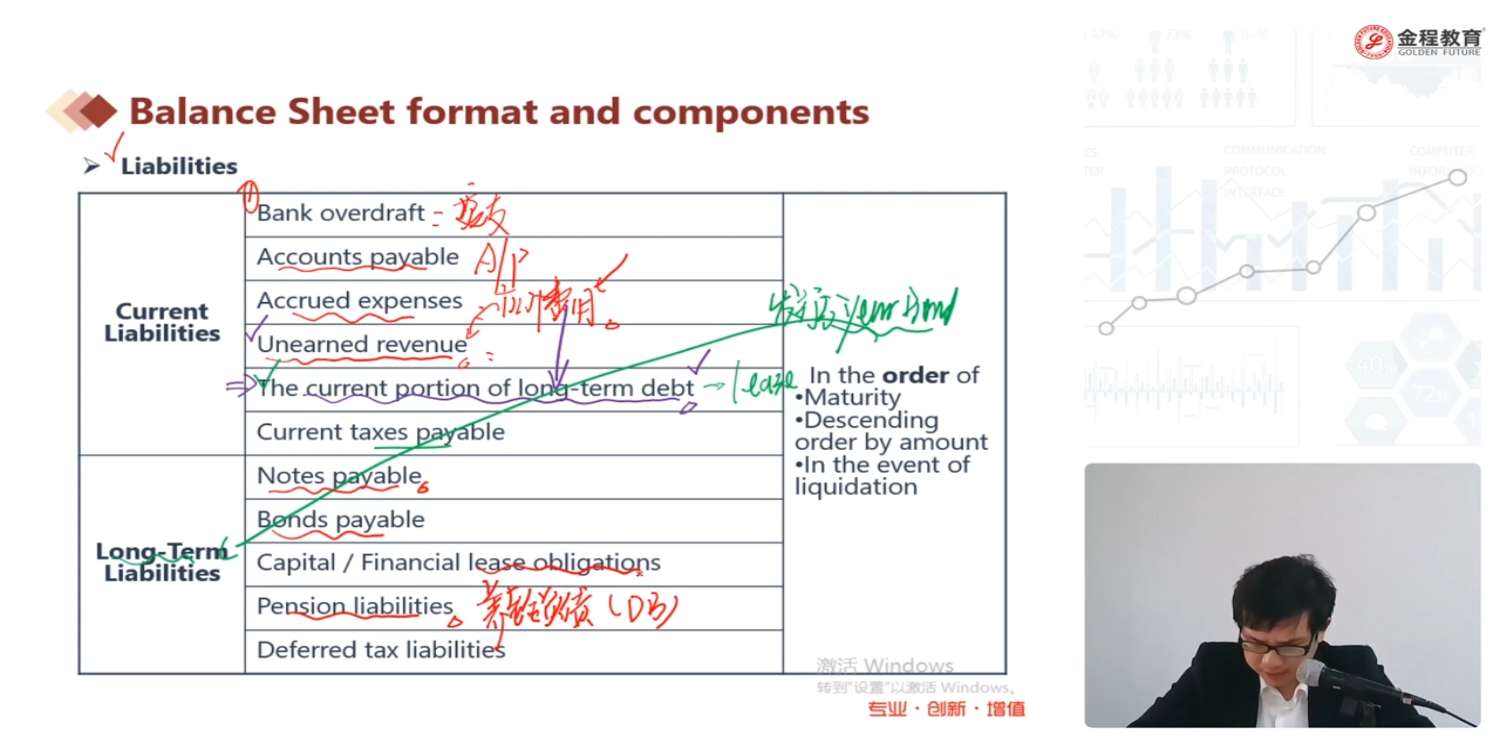 金程教育
GOLDEN FUTURE
Balance Sheet format and components
➢ Liabilities
Current Liabilities
Bank overdraft = 透支
Accounts payable A/P
Accrued expenses 预计费用
Unearned revenue
The current portion of long-term debt → lease
Current taxes payable
Long-Term Liabilities
Notes payable
Bonds payable
Capital / Financial lease obligations
Pension liabilities 养老金负债 (DB)
Deferred tax liabilities
In the order of
•Maturity
•Descending
order by amount
•In the event of
liquidation
year Bond
COMMUNICATION
PROTOCOL
INTERFACE
COMPUTER
激活 Windows
转到“设置”以激活 Windows。
专业·创新·增值